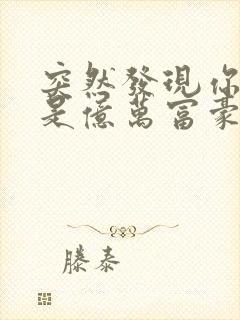 突然發現你
是億萬富豪
滕泰